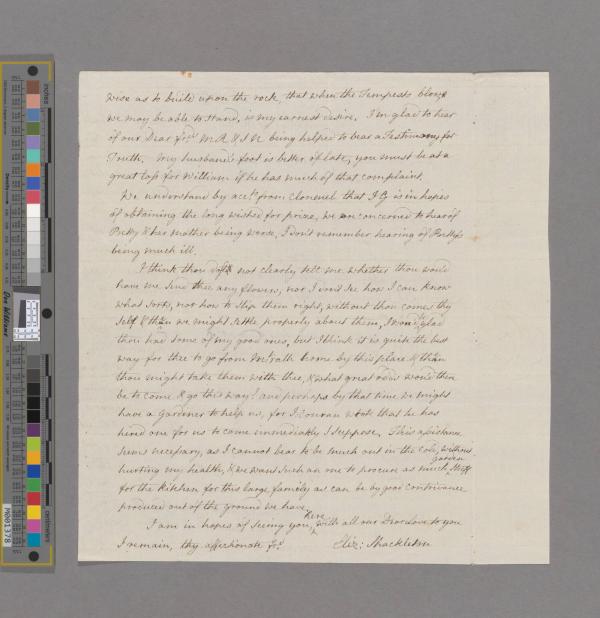 wise as to build upon the rock, that when the Tempests blow
we may be able to stand, is my earnest desire. I'm glad to hear
of our Dear frds M.R & J N being helped to bear a Testimony for
Truth. My husband's foot is better of late, you must be at a
great loss for William if he has much of that complaint.
We understand by acct. from Clonmel that J G is in hopes
of obtaining the long wished for prize, we are concerned to hear of
Polly & her Mother being worse, I don't remember hearing of Polly's
being much ill.
I think thou dost not clearly tell me whether thou would
have me send thee any flowers, nor I don't see how I can know
what sorts, nor how to slip them right, without thou comes thy
self & than we might settle properly about them, I would be glad
thou had some of my good ones, but I think it is quite the best
way for thee to go from Mt.rath home by this place & than
thou might take them with thee, & what great odds would then
be to come & go this way? and perhaps by that time we might
have a Gardener to help us, for J. Conran wrote that he has
hired one for us to come immediately I suppose. This assistance
seems necessary, as I cannot bear to be much out in the cold, without
hurting my health, & we want such an one to procure as much garden Stuff
for the kitchen for this large family as can be by good contrivance
produced out of the ground we have.
I am in hopes of seeing you here, with all our Dear love to you
I remain, thy affectionate frd. Eliz: Shackleton
inches
Density
Don Williams
M001378
centimeters